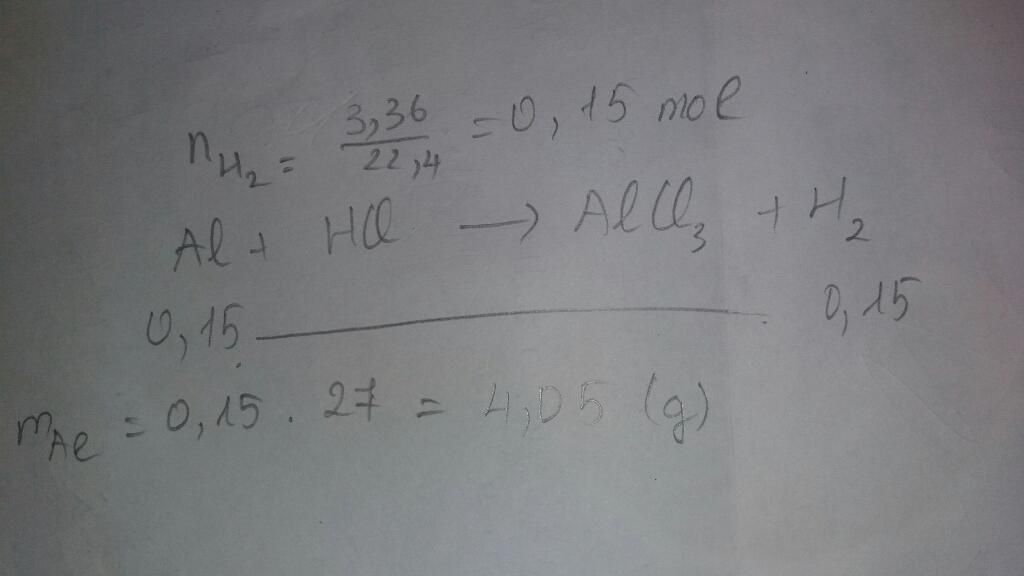 nH₂ = 3,36/22,4 = 0,15 mol
Al + HCl → AlCl₃ + H₂
0,15 ——— 0,15
mAl = 0,15 . 27 = 4,05 (g)